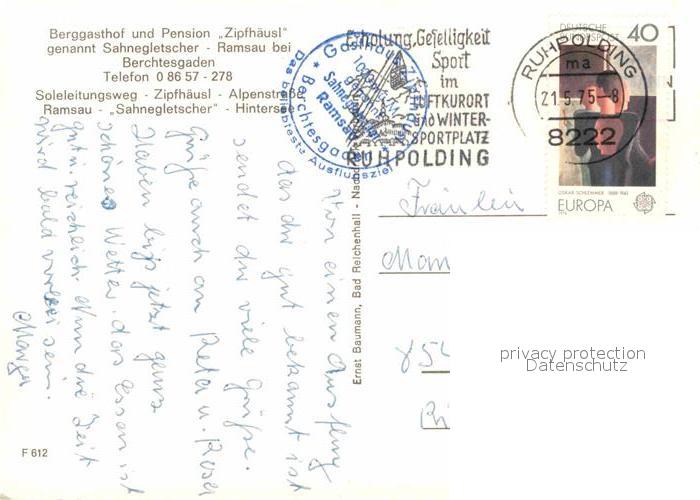 Berggasthof und Pension „Zipfhäusl"
genannt Sahnegletscher - Ramsau bei
Berchtesgaden
Telefon 0 86 57 - 278
Soleleitungsweg - Zipfhäusl - Alpenstraße
Ramsau - „Sahnegletscher" - Hintersee
Erholung, Geselligkeit
Sport
im
LUFTKURORT
und WINTER-
SPORTPLATZ
RUHPOLDING
RUHPOLDING
ma
21.5.75-8
8222
DEUTSCHE
BUNDESPOST
40
OSKAR SCHLEMMER 1888-1943
EUROPA
Gasthaus
Sahnegletscher
Ramsau
Berchtesgaden
Das beliebte Ausflugsziel
Von einem Ausflug
das dir gut bekannt ist
sendet dir viele Grüße.
Grüße auch an Reta u.
Haben bis jetzt ganz
schönes Wetter. das Essen ist
gut u. reichlich. Nun die Zeit
wird bald vorbei sein.
Ernst Baumann, Bad Reichenhall -
Fräulein
Mom
854
F 612
privacy protection
Datenschutz